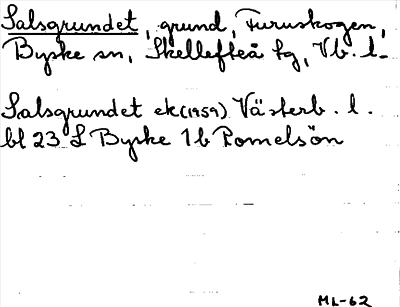 Salsgrundet, grund, Furuskogen,
Byske sn, Skellefteå tg, Vb. l.
Salsgrundet ek(1959) Västerb. l.
bl 23 L Byske 1b Romelsön
ML-62